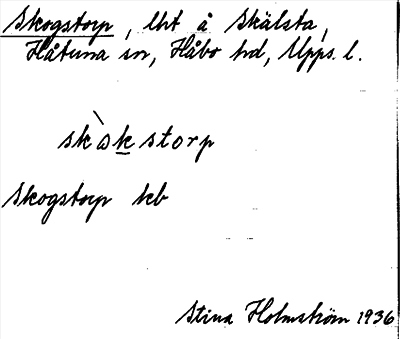 Skogstorp, lht å Skälsta,
Håtuna sn, Håbo hd, Upps. l.
skὰkstorp
Skogstorp kb
Stina Holmström 1936